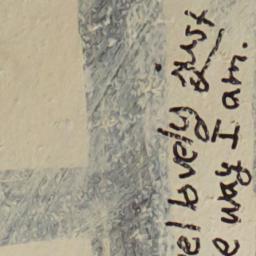 el lovely just
e way I am.